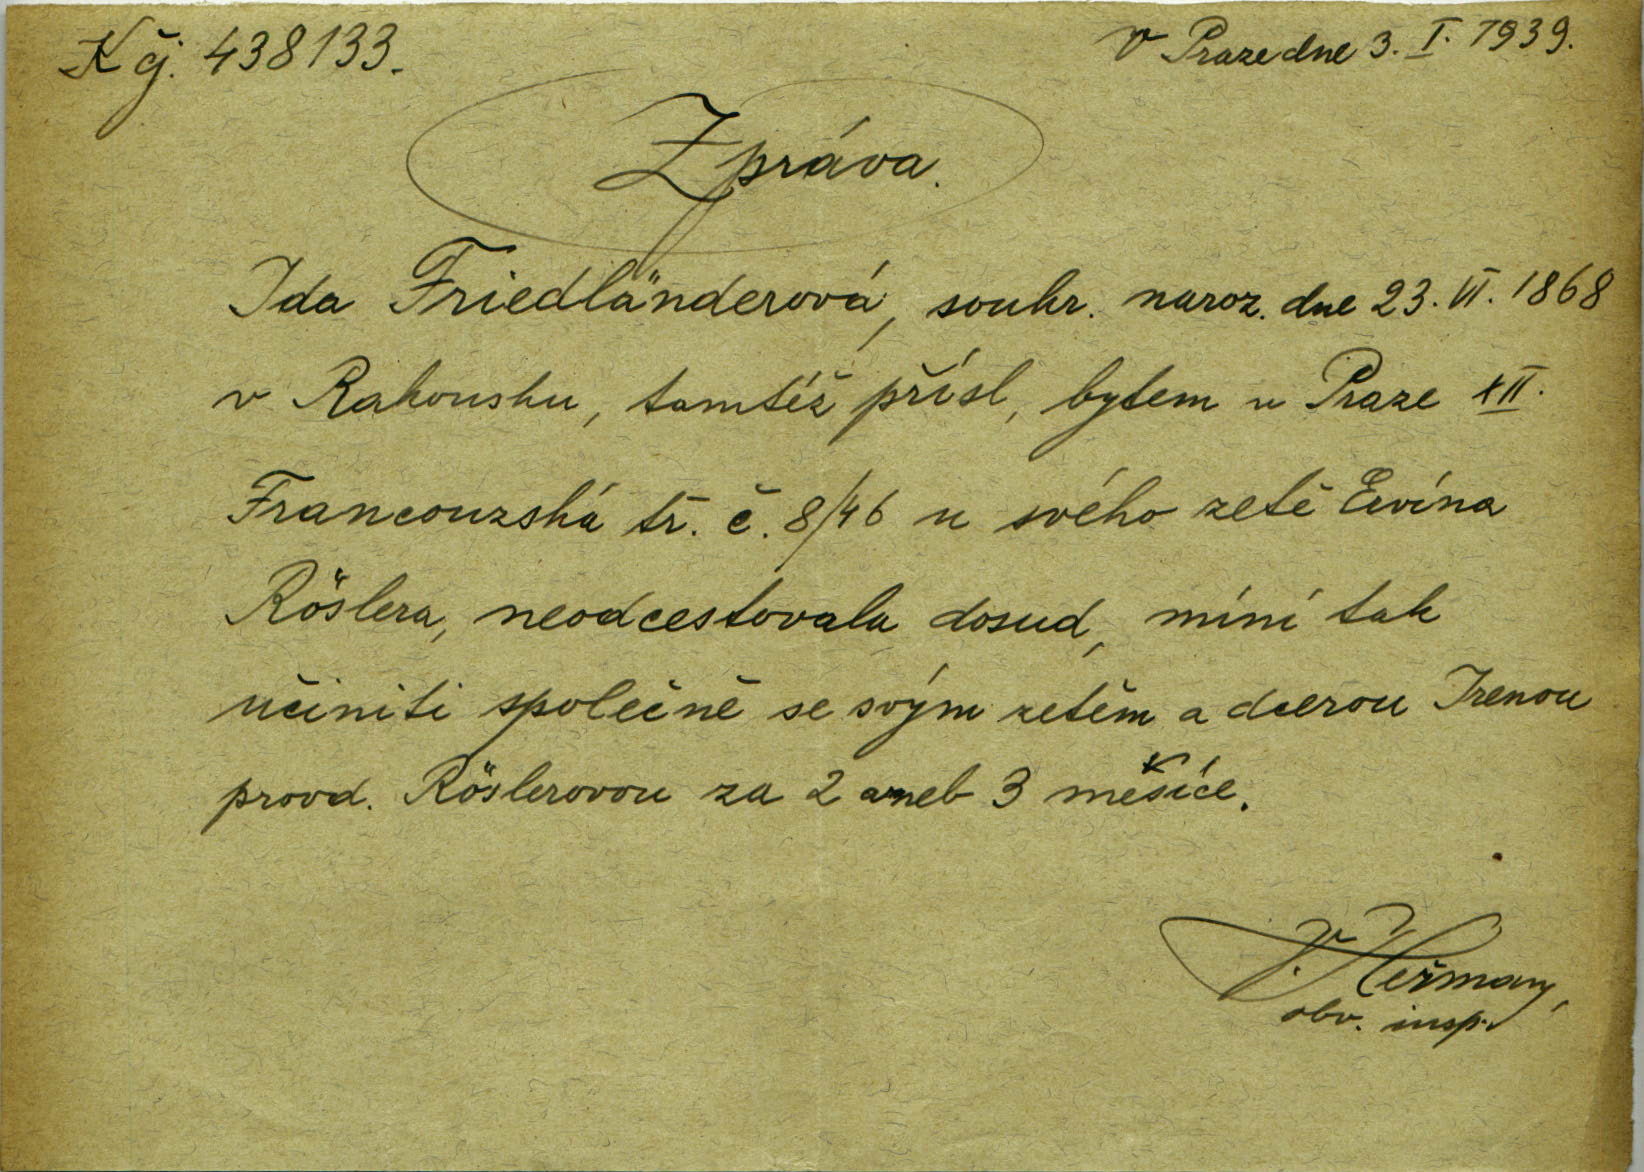 K čj. 438133.
V Praze dne 3. I. 1939.
Zpráva.
Ida Friedländerová, soukr. naroz. dne 23. VI. 1868
v Rakousku, tamtéž přísl, bytem v Praze XII.
Francouzská tř. č. 8/46 u svého zetě Ervína
Röslera, neodcestovala dosud, míní tak
učiniti společně se svým zetěm a dcerou Irenou
provd. Röslerovou za 2 aneb 3 měsíce.
V. Heřman,
obv. insp.